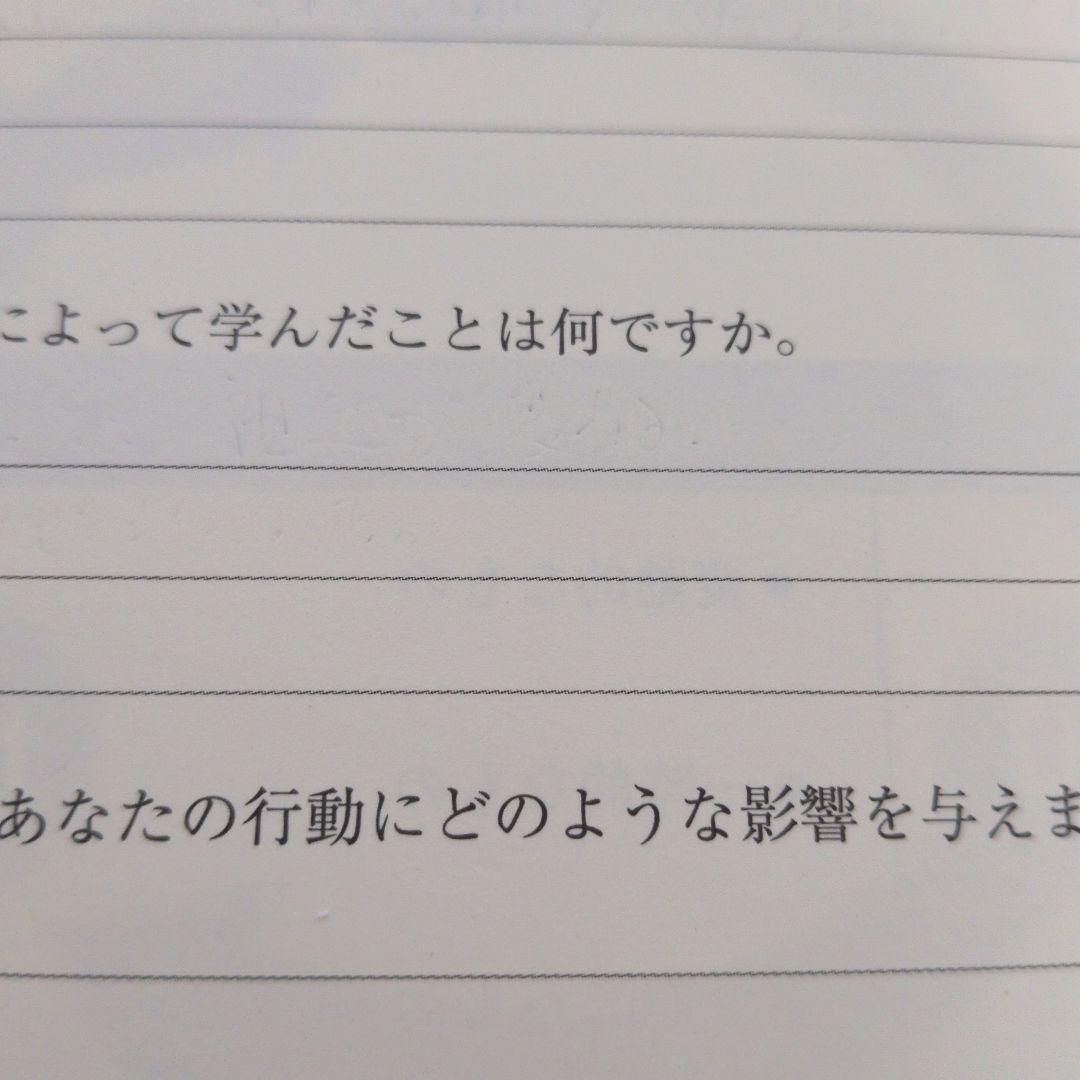 によって学んだことは何ですか。
あなたの行動にどのような影響を与えま